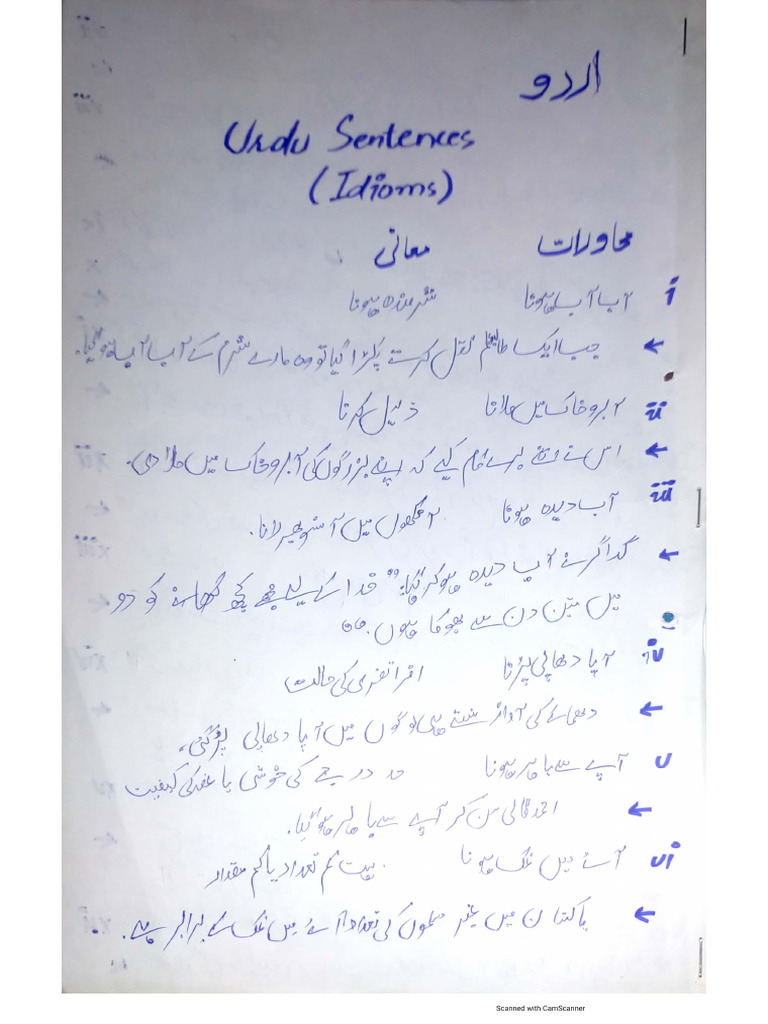 اردو
Urdu Sentences
(Idioms)
محاورات معانی
i آب آب ہونا شرمندہ ہونا
← جب ایک طالبعلم نقل کرتے پکڑا گیا تو وہ مارے شرم کے آب آب ہو گیا۔
ii آبرو خاک میں ملانا ذلیل کرنا
← اس نے اتنے برے کام کیے کہ اپنے بزرگوں کی آبرو خاک میں ملا دی۔
iii آب دیدہ ہونا آنکھوں میں آنسو بھر لانا۔
← گداگر نے آب دیدہ ہو کر کہا: "خدا کے لیے مجھے کچھ کھانے کو دو
میں تین دن سے بھوکا ہوں۔"
iv آپا دھاپی پڑنا افراتفری کی حالت
← دھماکے کی آواز سنتے ہی لوگوں میں آپا دھاپی پڑ گئی۔
v آپے سے باہر ہونا حد درجے کی خوشی یا غصہ کی کیفیت
← احمد گالی سن کر آپے سے باہر ہو گیا۔
vi آٹے میں نمک ہونا بہت کم تعداد یا کم مقدار
← پاکستان میں غیر مسلموں کی تعداد آٹے میں نمک کے برابر ہے۔
Scanned with CamScanner